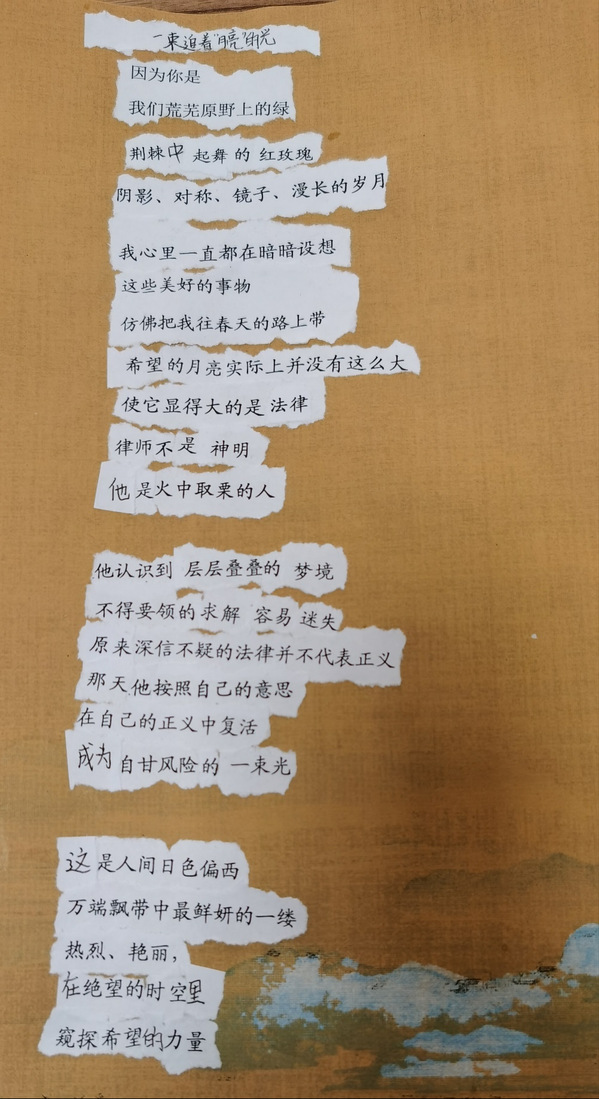 一束追着"月亮"的光
因为你是
我们荒芜原野上的绿
荆棘中 起舞 的 红玫瑰
阴影、对称、镜子、漫长的岁月
我心里一直都在暗暗设想
这些美好的事物
仿佛把我往春天的路上带
希望的月亮实际上并没有这么大
使它显得大的是 法律
律师不是 神明
他是火中取栗的人
他认识到 层层叠叠的 梦境
不得要领的求解 容易 迷失
原来深信不疑的法律并不代表正义
那天他按照自己的意思
在自己的正义中复活
成为 自甘风险的 一束光
这是人间日色偏西
万端飘带中最鲜妍的一缕
热烈、艳丽，
在绝望的时空里
窥探希望的力量